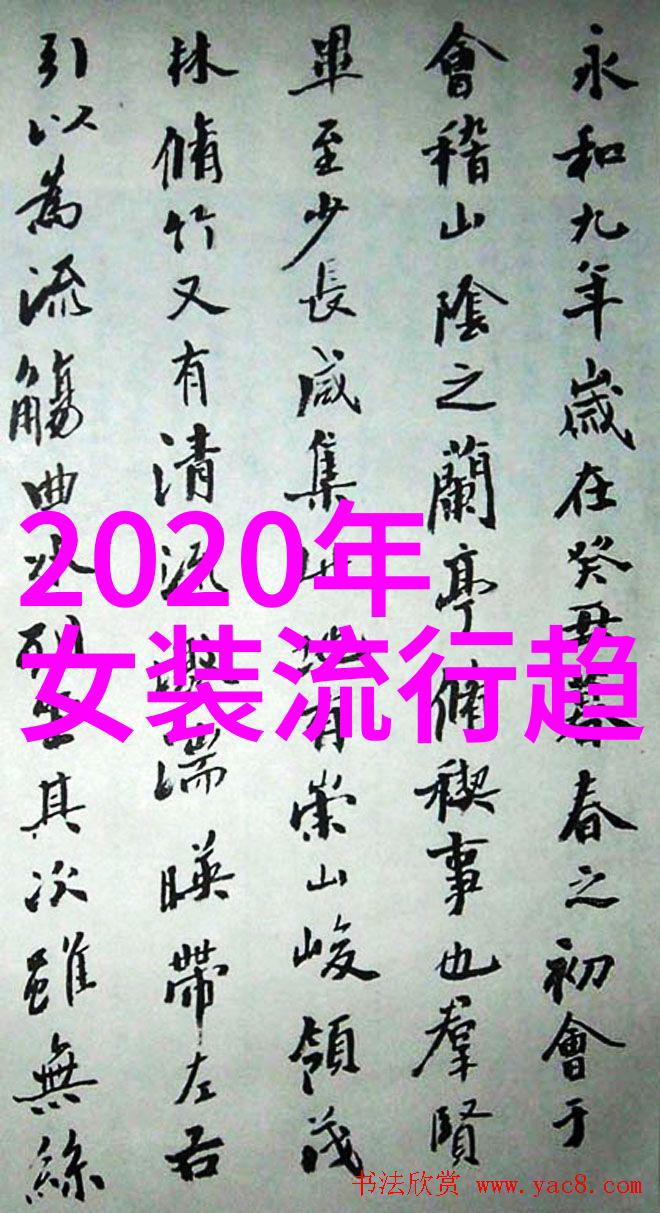 永和九年歲在癸丑暮春之初會于
會稽山陰之蘭亭脩稧事也羣賢
畢至少長咸集此地有崇山峻領茂
林脩竹又有清流激湍暎帶左右
引以為流觴曲水列坐其次雖無絲
2020年
女装流行趋
书法欣赏 www.yac8.com